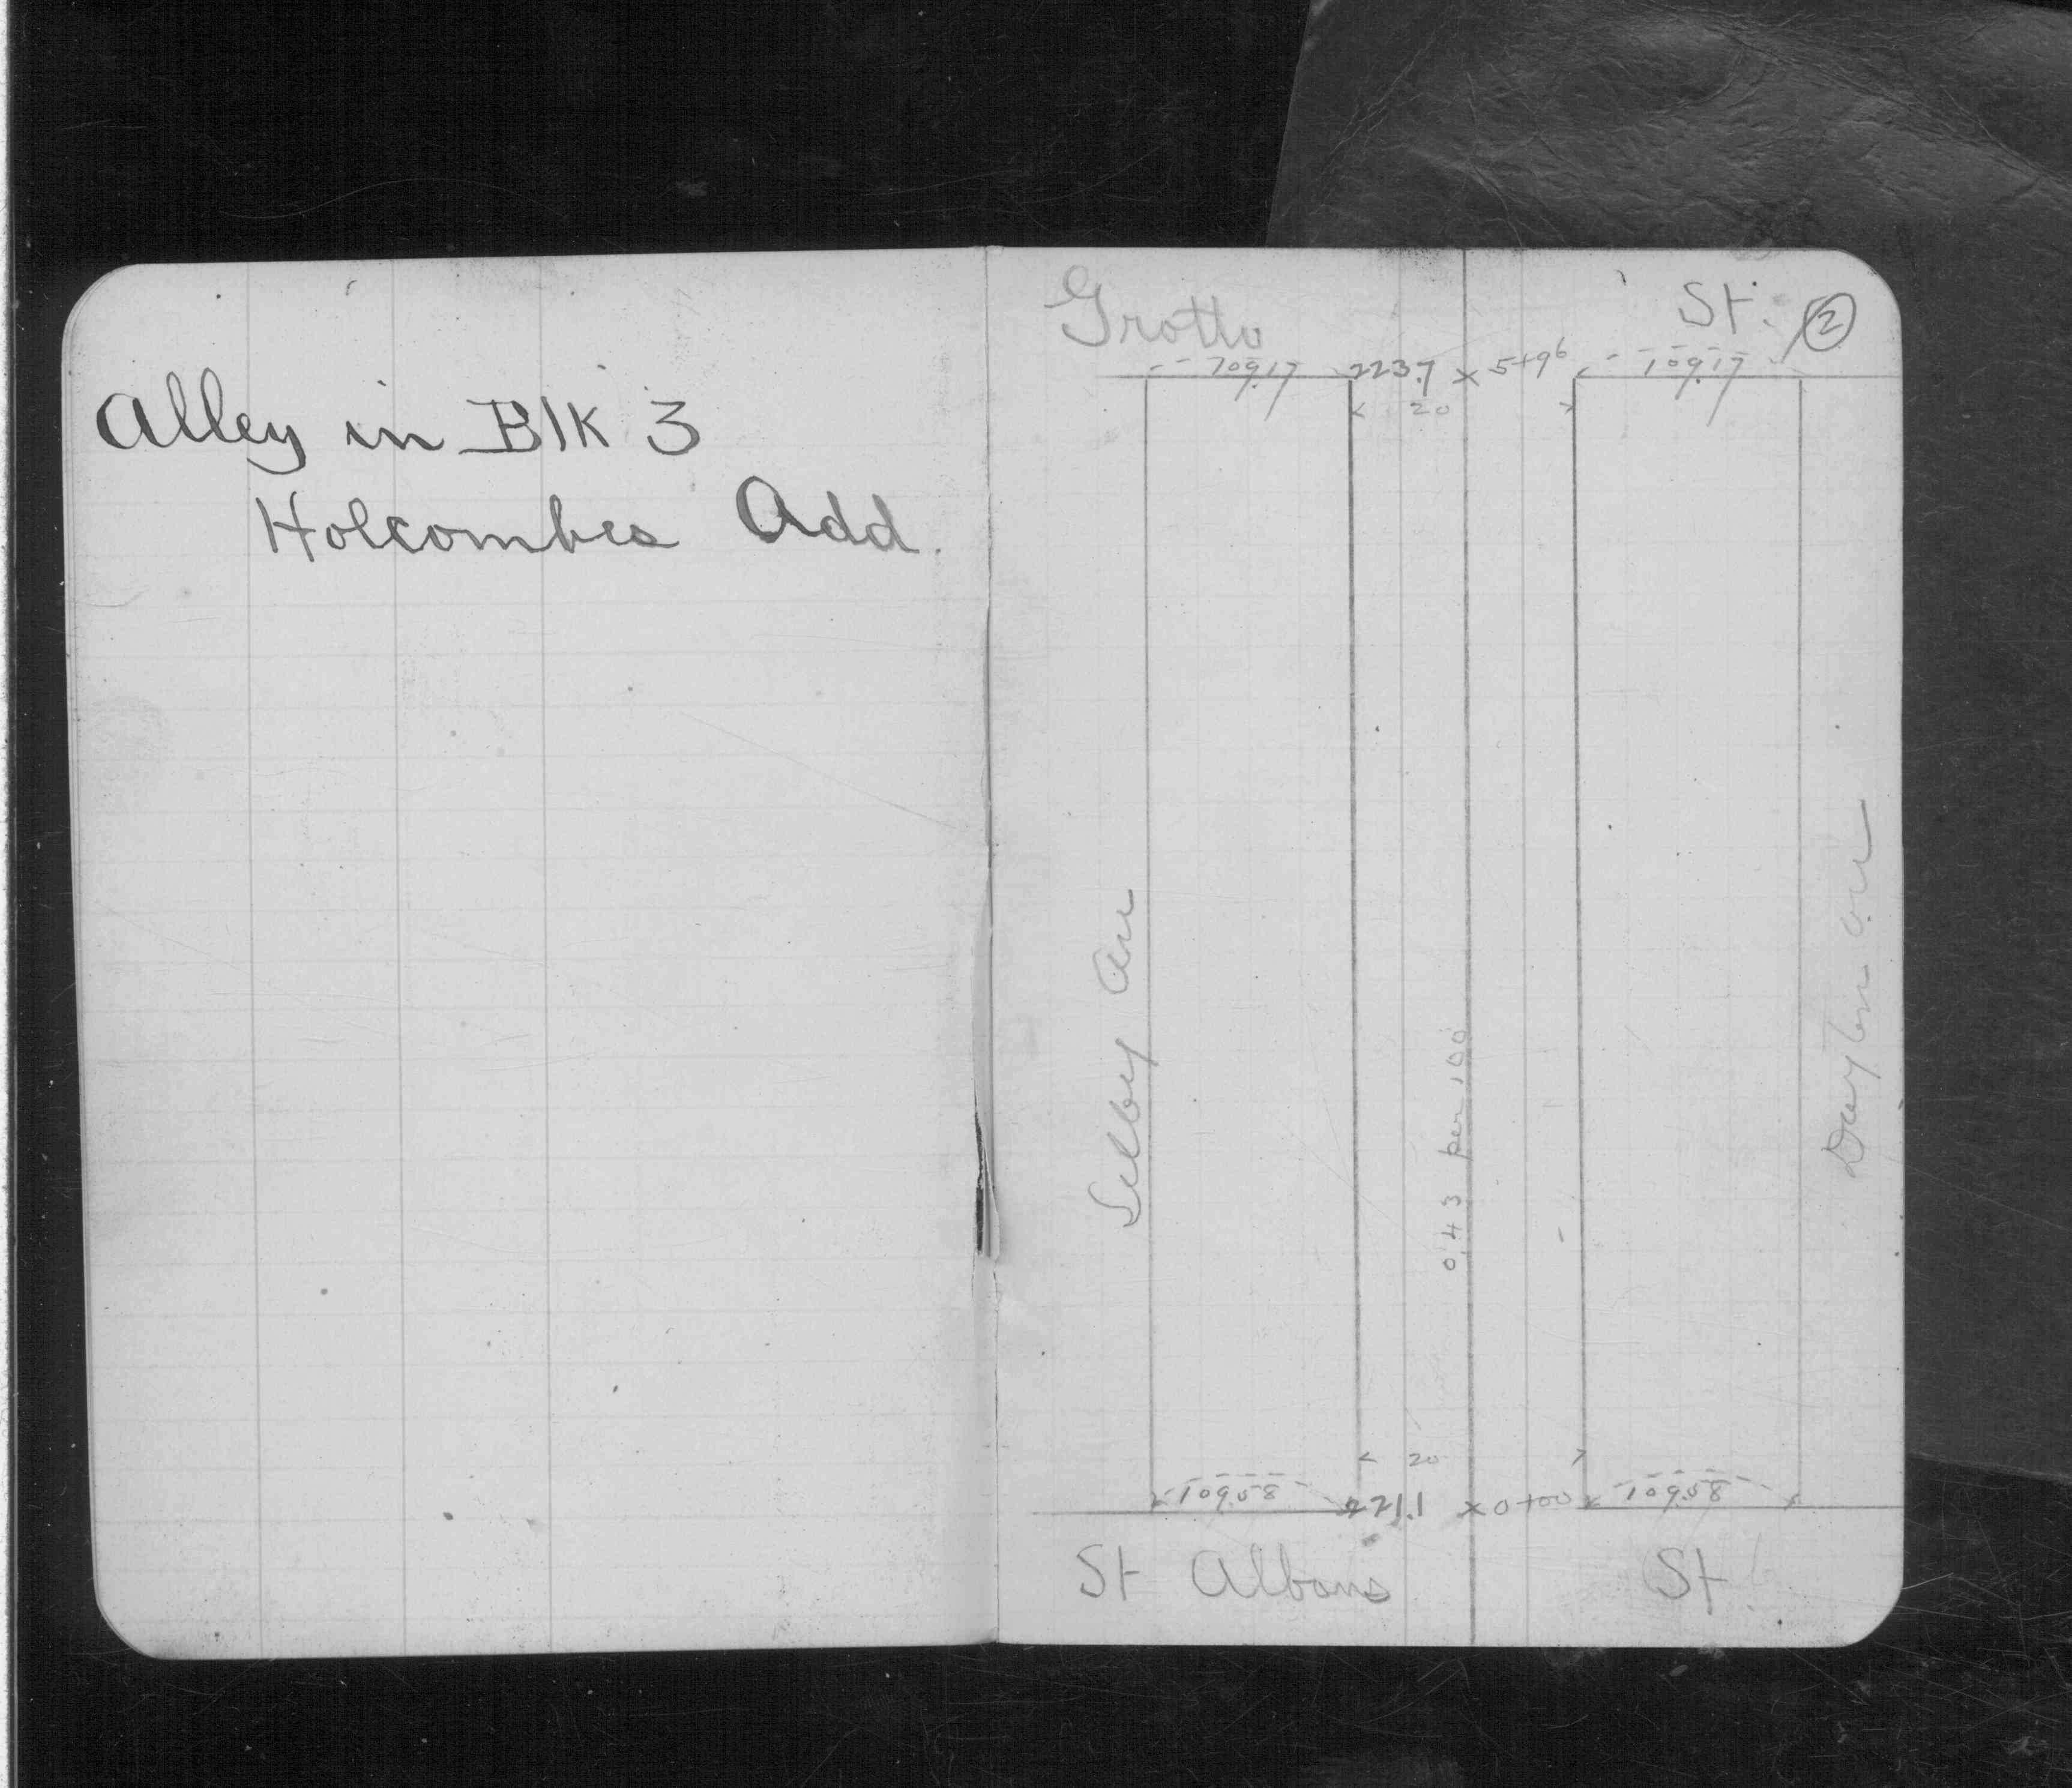 Alley in Blk 3
Holcombes Add.
Grotto St. 2
109.17 223.7 x 5+96 109.17
20
Selby Ave
0.43 per 100'
Dayton Ave
20
109.58 221.1 x 0+00 109.58
St Albans St